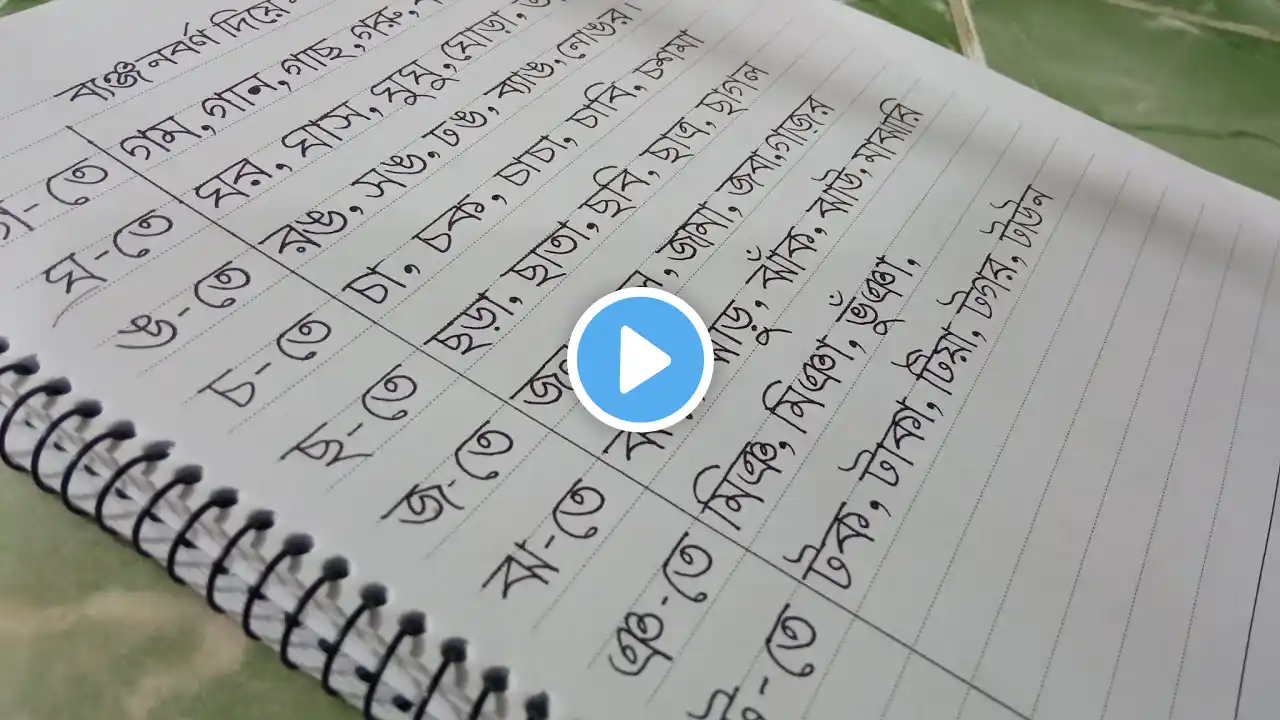 ব্যঞ্জনবর্ণ দিয়ে
গ-তে গাম, গান, গাছ, গরু,
ঘ-তে ঘর, ঘাস, ঘুঘু, ঘোড়া,
ঙ-তে রঙ, সঙ, ঢঙ, ব্যাঙ, নোঙর।
চ-তে চা, চক, চাচা, চাবি, চশমা
ছ-তে ছড়া, ছাতা, ছবি, ছাত্র, ছাগল
জ-তে জামা, জবা, গাজর
ঝ-তে ঝাঁক, ঝাউ, মাঝারি
ঞ-তে মিঞ, মিঞা, ভুঁঞা,
ট-তে টক, টাকা, টিয়া, টগর, টাউন